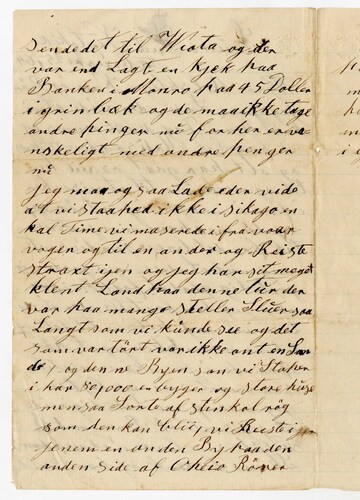 sendedet til Wiota og der
var end Lagt en kjek paa
Banken i Monro paa 45 Doller
i grin bæk og de maa ikke tage
andre pinger nu for her er va-
nskeligt med andre penger
nu
jeg maa og saa Lade eder vide
at vi staaped ikke i sikago en
kal Time vi maserede i fra voar
vogen og til en ander og Reiste
straxt igen og jeg har sit meget
klent Land paa denne tuer der
var paa mange steller Sluer saa
Langt som vi kunde see og det
som var tört var ikke ant en San
d og den Byen som vi Staper
i har 80,000 en byger og store huse
men saa Sorte af stenkol rög
som den kan blic, vi Reiste i
jenem en anden By paa den
anden side af Ohio Röver